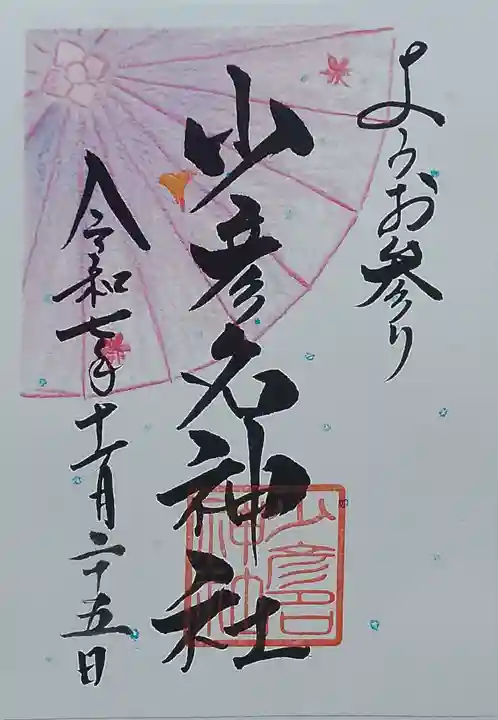 ようお参り
少彦名神社
令和七年十一月二十五日
少彦名
神社